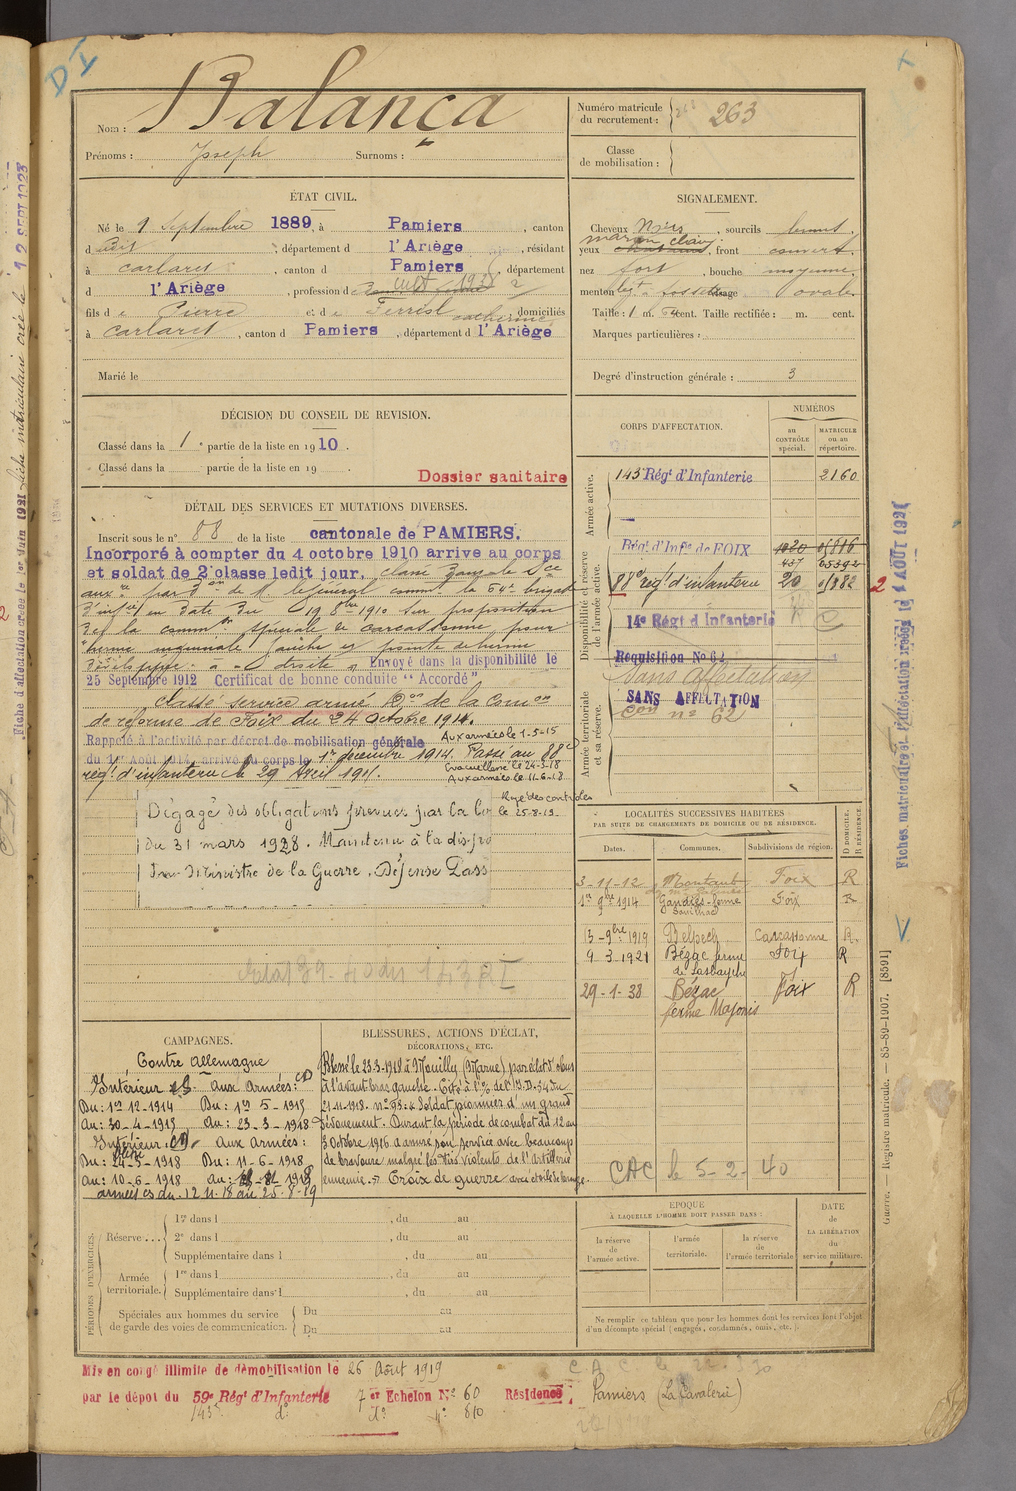 DI
Nom : Balança
Prénoms : Joseph Surnoms :
Numéro matricule du recrutement : 263
Classe de mobilisation :
ÉTAT CIVIL.
Né le 9 Septembre 1889, à Pamiers, canton
d dit, département d l'Ariège, résidant
à Carlaret, canton d Pamiers, département
d l'Ariège, profession d cult 
fils de Pierre et de Ferriol Catherine domiciliés
à Carlaret, canton d Pamiers, département d l'Ariège
Marié le
SIGNALEMENT.
Cheveux Noirs, sourcils bruns,
yeux marron clair, front couvert,
nez fort, bouche moyenne,
menton à fossette visage ovale
Taille : 1 m. 64 cent. Taille rectifiée : m. cent.
Marques particulières :
Degré d'instruction générale : 3
DÉCISION DU CONSEIL DE REVISION.
Classé dans la 1e partie de la liste en 1910.
Classé dans la partie de la liste en 19
Dossier sanitaire
DÉTAIL DES SERVICES ET MUTATIONS DIVERSES.
Inscrit sous le n° 88 de la liste cantonale de PAMIERS.
Incorporé à compter du 4 octobre 1910 arrive au corps
et soldat de 2e classe ledit jour, classé dans le Sce
auxre par Don de Mr le général commt la 64e brigade
d'infie en date du 19 8bre 1910 sur proposition
de la common spéciale de Carcassonne pour
"hernie inguinale gauche et pointe de hernie
à droite" Envoyé dans la disponibilité le
25 Septembre 1912 Certificat de bonne conduite "Accordé"
Classé service armé Don de la Comon
de réforme de Foix du 24 Octobre 1914.
Rappelé à l'activité par décret de mobilisation générale
du 1er Août 1914, arrivé au corps le 1er décembre 1914. Passé au 88e
régt d'infanterie le 29 Avril 1915.
Aux armées le 1-5-15
Evacué blessé le 24-3-18
Aux armées le 11-6-18
Rayé des contrôles
le 25-8-19
Dégagé des obligations prévues par la loi
du 31 mars 1928. Maintenu à la dispo
du Ministre de la Guerre. Défense Pass
CORPS D'AFFECTATION.
NUMÉROS
au CONTRÔLE spécial.
MATRICULE ou au répertoire.
Armée active.
143e Régt d'Infanterie 2160
Disponibilité et réserve de l'armée active.
Régt d'Infie de FOIX 1020 01816
437 05392
88e régt d'infanterie 20 01882
14e Régt d'Infanterie
Requisition N° 62
Sans affectation
Armée territoriale et sa réserve.
SANS AFFECTATION
Con n° 62
LOCALITÉS SUCCESSIVES HABITÉES
PAR SUITE DE CHANGEMENTS DE DOMICILE OU DE RÉSIDENCE.
Dates. Communes. Subdivisions de région. D DOMICILE. R RÉSIDENCE.
3-11-12 Montaut Foix R
1er 9bre 1914 Gaudiès ferme Foix R
13-9bre 1919 Belpech Carcassonne R.
9-3-1921 Bézac ferme de Lasbaychè Foix R
29-1-38 Bézac ferme Majoris Foix R
CAC le 5-2-40
CAMPAGNES.
Contre Allemagne
Intérieur CS. aux Armées : CD
Du : 1er 12-1914 Du : 1er 5-1915
Au : 30-4-1915 Au : 23-3-1918
Intérieur : CD blessé aux Armées :
Du : 24-3-1918 Du : 11-6-1918
Au : 10-6-1918 Au :
armées CS du 12 11.18 au 25-8-19
BLESSURES, ACTIONS D'ÉCLAT,
DÉCORATIONS, ETC.
Blessé le 23-3-1918 à Mouilly (Marne) par éclat d'obus
à l'avant bras gauche. Cité à l'O/ de l'I.D. 34 du
21-11-1918. n° 93 : « Soldat pionnier d'un grand
dévouement. Durant la période de combat du 12 au
3 Octobre 1916 a assuré son service avec beaucoup
de bravoure malgré les tirs violents de l'artillerie
ennemie. » Croix de guerre avec étoile de bronze.
PÉRIODES D'EXERCICES.
Réserve....
1re dans l , du au
2e dans l , du au
Supplémentaire dans l , du au
Armée territoriale.
1re dans l , du au
Supplémentaire dans l , du au
Spéciales aux hommes du service de garde des voies de communication. Du au
Du au
ÉPOQUE
À LAQUELLE L'HOMME DOIT PASSER DANS :
la réserve de l'armée active.
l'armée territoriale.
la réserve de l'armée territoriale
DATE DE LA LIBÉRATION du service militaire.
Ne remplir ce tableau que pour les hommes dont les services font l'objet
d'un décompte spécial (engagés, condamnés, omis, etc.).
Mis en congé illimité de démobilisation le 26 Août 1919
par le dépôt du 59e Régt d'Infanterie 7er Echelon N° 60 Résidence Pamiers (La Cavalerie)
143e do do n° 810
Guerre. — Registre matricule. — 85-89-1907. [8591]